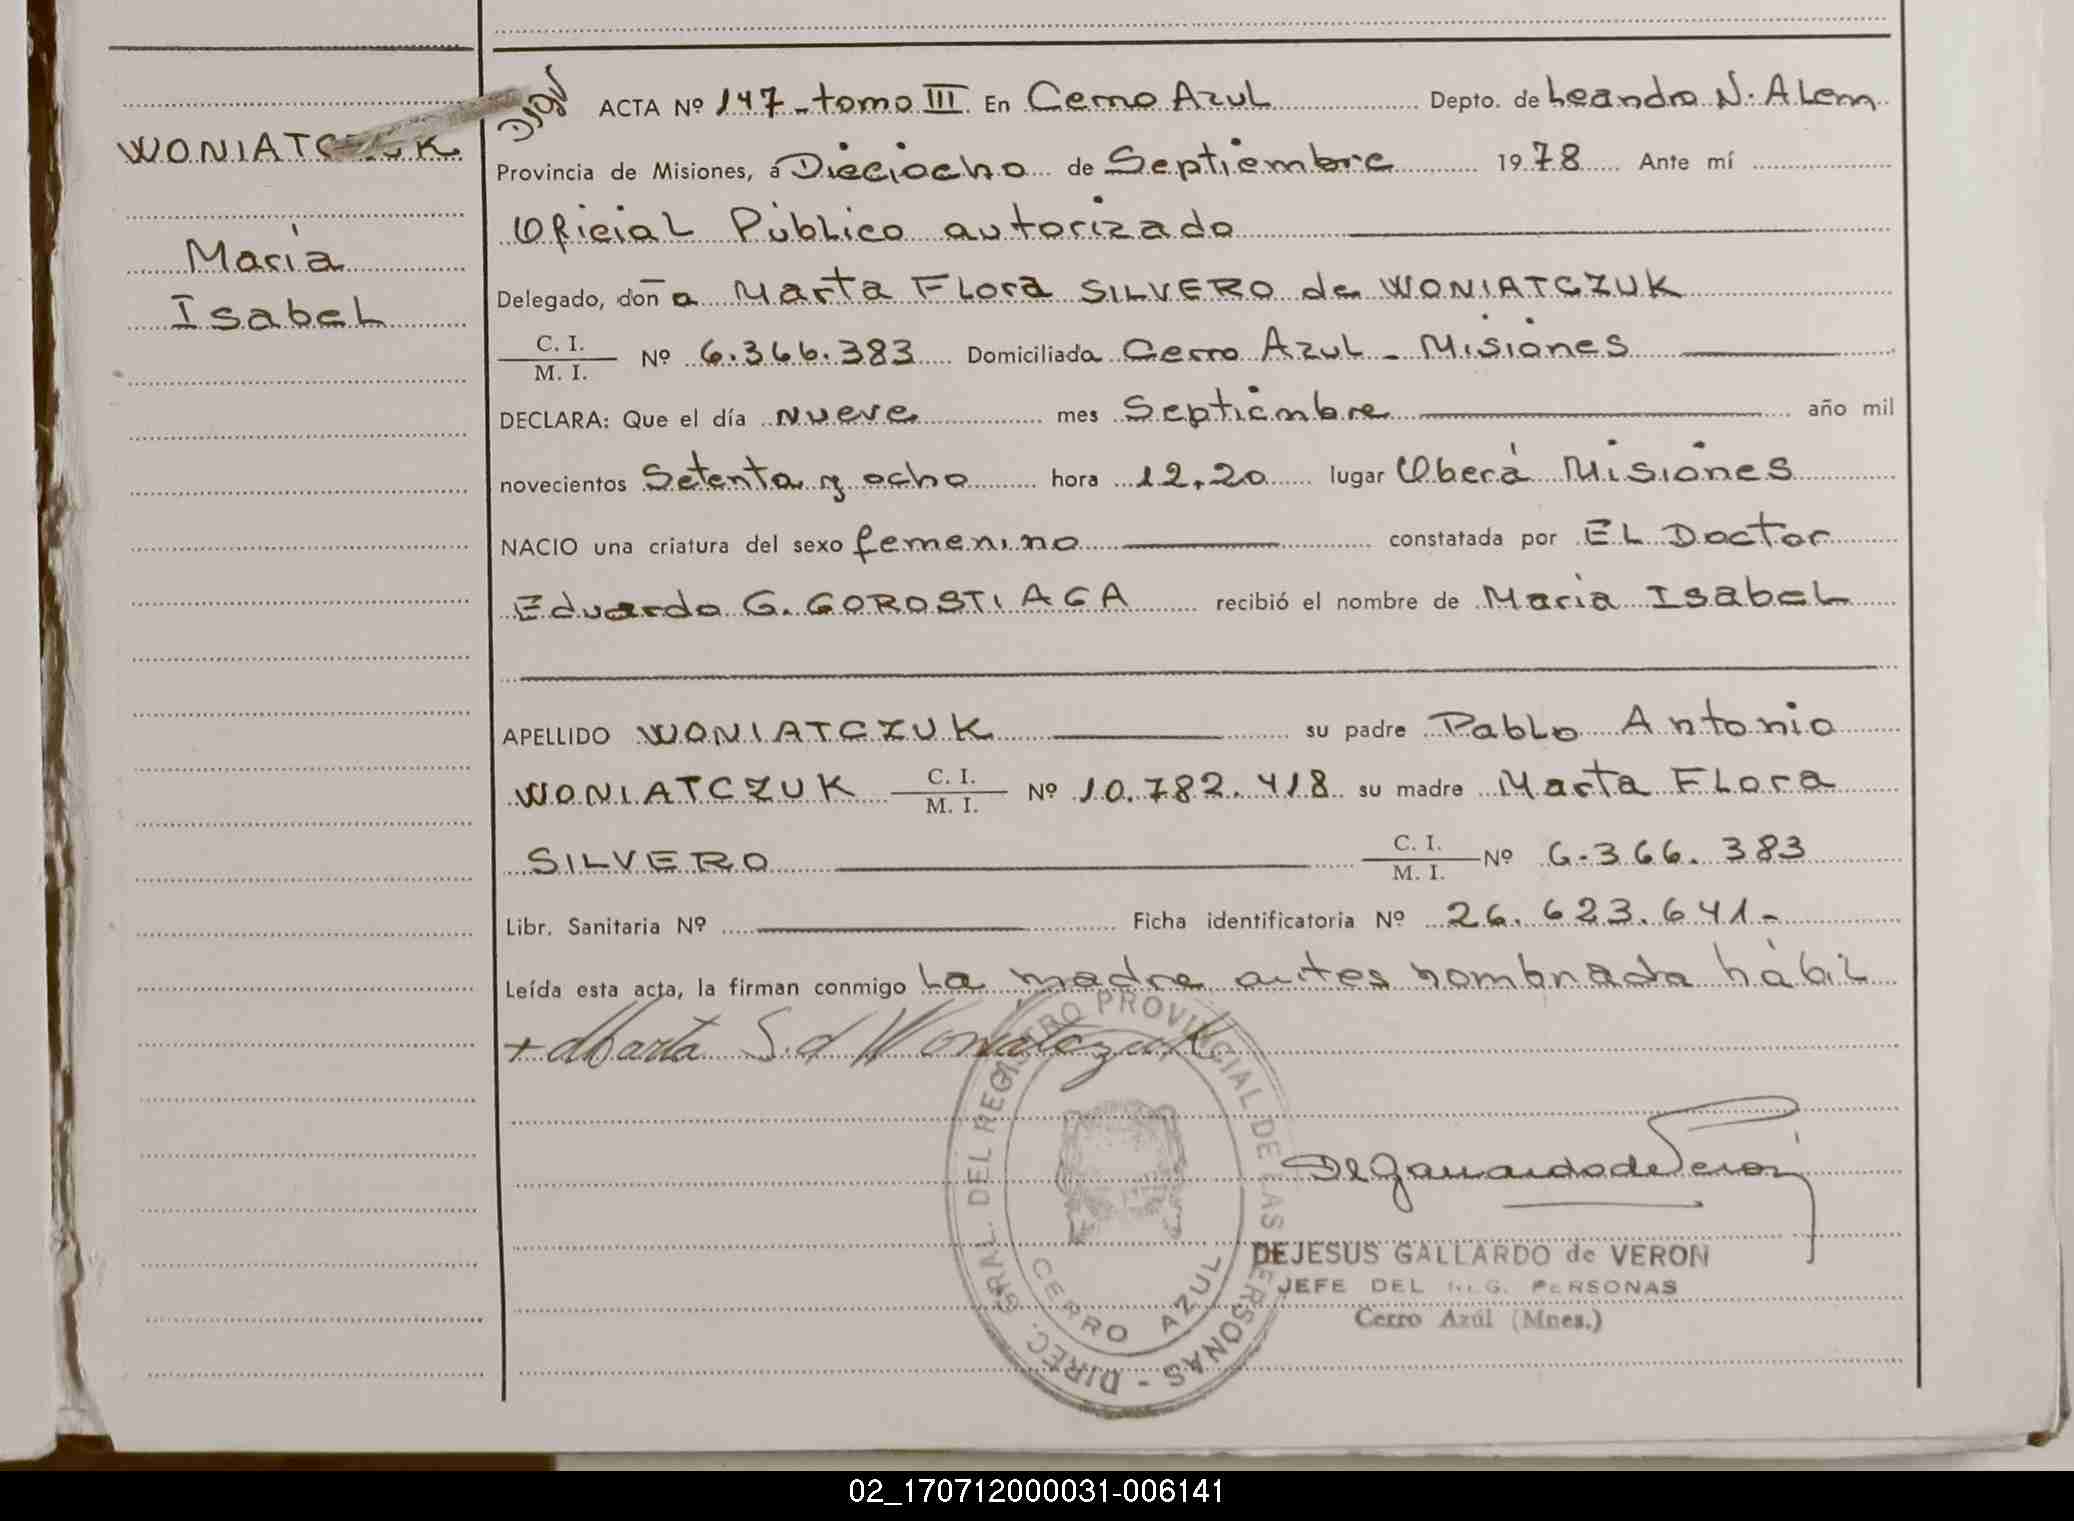 WONIATCZUK
María
Isabel
ACTA Nº 147 - tomo III En Cerro Azul Depto. de Leandro N. Alem
Provincia de Misiones, á Dieciocho de Septiembre 1978 Ante mí
Oficial Público autorizado
Delegado, doña Marta Flora SILVERO de WONIATCZUK
C. I.
M. I.
Nº 6.366.383 Domiciliada Cerro Azul - Misiones
DECLARA: Que el día nueve mes Septiembre año mil
novecientos Setenta y ocho hora 12,20 lugar Oberá Misiones
NACIO una criatura del sexo femenino constatada por EL Doctor
Eduardo G. GOROSTIAGA recibió el nombre de María Isabel
APELLIDO WONIATCZUK su padre Pablo Antonio
WONIATCZUK C. I. M. I. Nº 10.782.418 su madre Marta Flora
SILVERO C. I. M. I. Nº 6.366.383
Libr. Sanitaria Nº Ficha identificatoria Nº 26.623.641-
Leída esta acta, la firman conmigo La madre antes nombrada hábil
+ Marta S. d Woniatczuk
DIREC. GRAL. DEL REGISTRO PROVINCIAL DE LAS PERSONAS -
CERRO AZUL
DEJESUS GALLARDO de VERON
JEFE DEL REG. PERSONAS
Cerro Azúl (Mnes.)
02_170712000031-006141